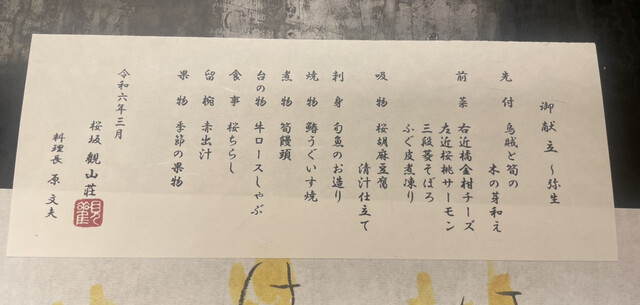 御献立 ～弥生
先付 烏賊と筍の
木の芽和え
前菜 右近橘金柑チーズ
左近桜桃サーモン
三段菱そぼろ
ふぐ皮煮凍り
吸物 桜胡麻豆腐
清汁仕立て
利身 旬魚のお造り
焼物 鰆うぐいす焼
煮物 筍饅頭
台の物 牛ロースしゃぶ
食事 桜ちらし
留椀 赤出汁
果物 季節の果物
令和六年三月
桜坂 観山荘
料理長 原 文夫